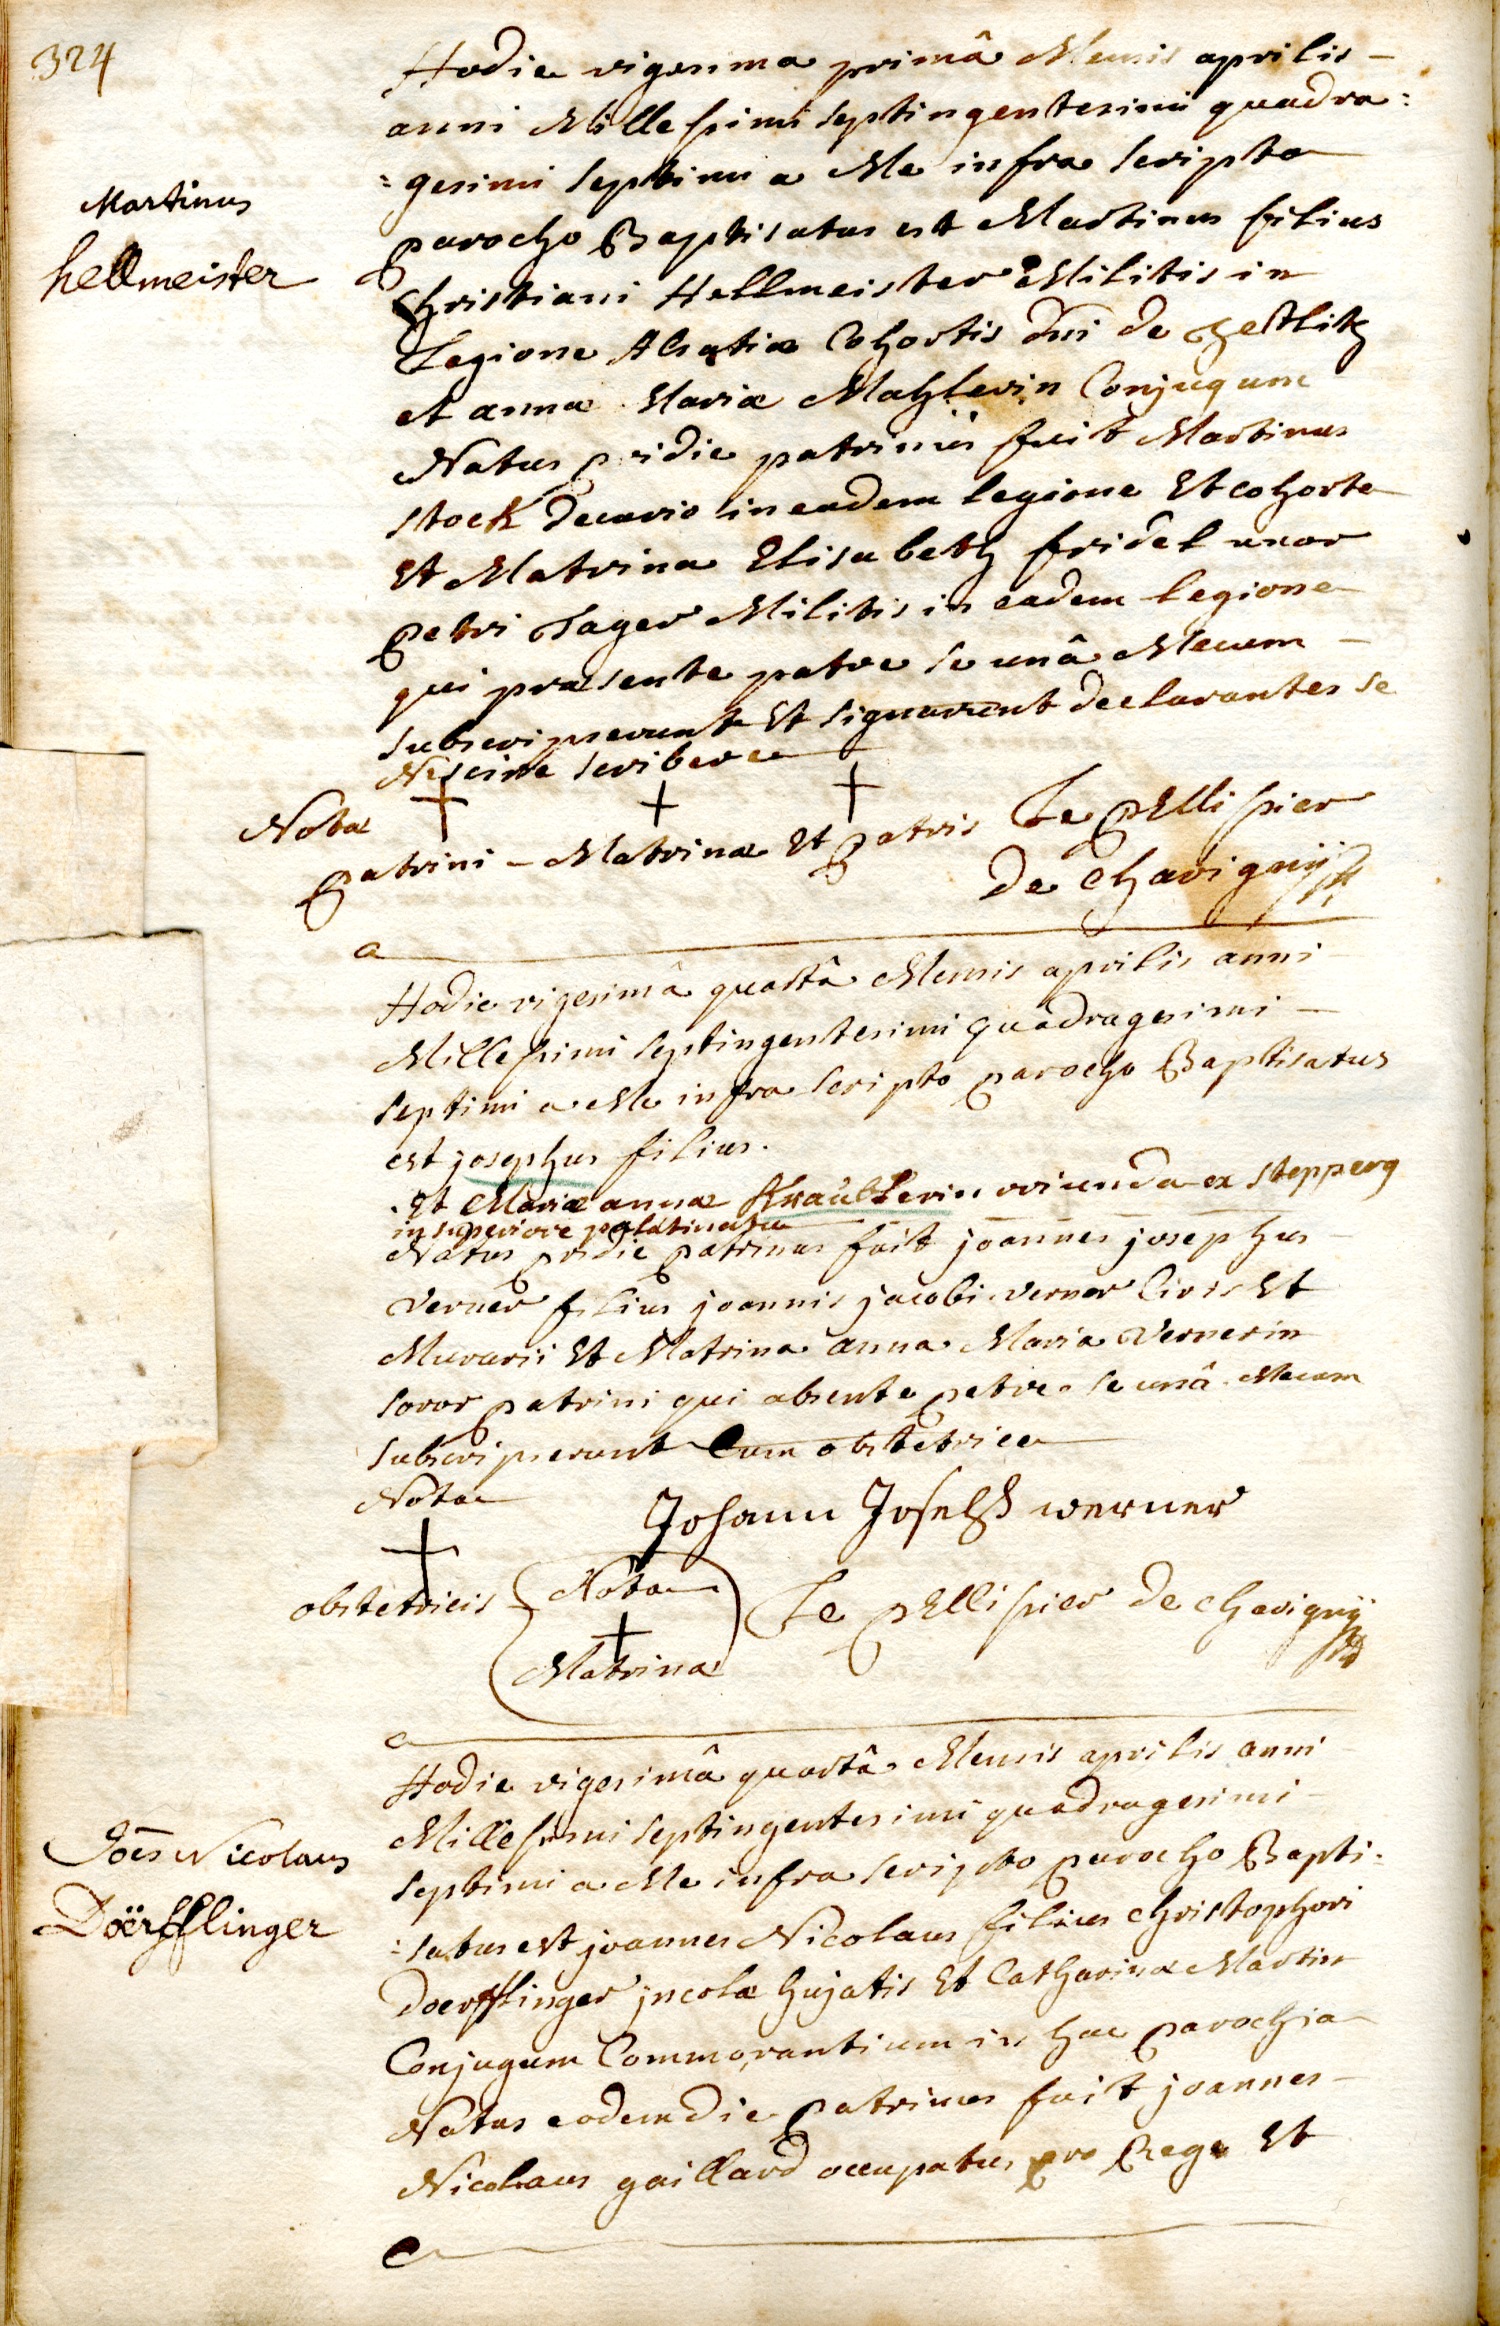 324
Hodie vigesima primâ Mensis aprilis –
anni Millesimi septingentesimi quadra:
=gesimi septimi a Me infra scripto
Martinus
hellmeister
parocho Baptisatus est Martinus filius
Christiani Hellmeister Militis in
Legione Alsatiæ Cohortis dni de Zedlitz
et annæ Mariæ Mahlerin Conjugum
Natus pridie patrinus fuit Martinus
stock decurio in eadem legione Et cohorte
Et Matrina Elisabeth fridel uxor
petri Jager Militis in eadem legione
qui præsente patre se unâ Mecum –
subscripserunt Et signarunt declarantes se
Nescire scribere
Nota
patrini – Matrinæ Et patris Le pEllissier
de Chavignÿ
Hodie vigesimâ quartâ Mensis aprilis anni
Millesimi septingentesimi quadragesimi –
septimi a Me infra scripto parocho Baptisatus
est josephus filius.
. Et Mariæ annæ oriunda ex stepperg
in superiore palatinatu
Natus pridie patrinus fuit joannes josephus
verner filius joannis jacobi verner Civis Et
Murarii Et Matrina anna Maria Vernerin
soror patrini qui absente patre se unâ Mecum
subscripserunt Cum obstetrice
Nota
Johann Joseph werner
obstetricis
Nota
Matrinæ
Le pEllissier de chavignÿ
Hodie vigesimâ quartâ Mensis aprilis anni
Millesimi septingentesimi quadragesimi –
Joes Nicolaus
Döerfflinger
septimi a Me infra scripto parocho Bapti=
=satus est joannes Nicolaus filius christophori
doerfflinger jncolæ hujatis Et Catharinæ Martin
Conjugum Commorantium in hac parochia
Natus eodem die patrinus fuit joannes –
Nicolaus gaillard occupatus pro Rege Et